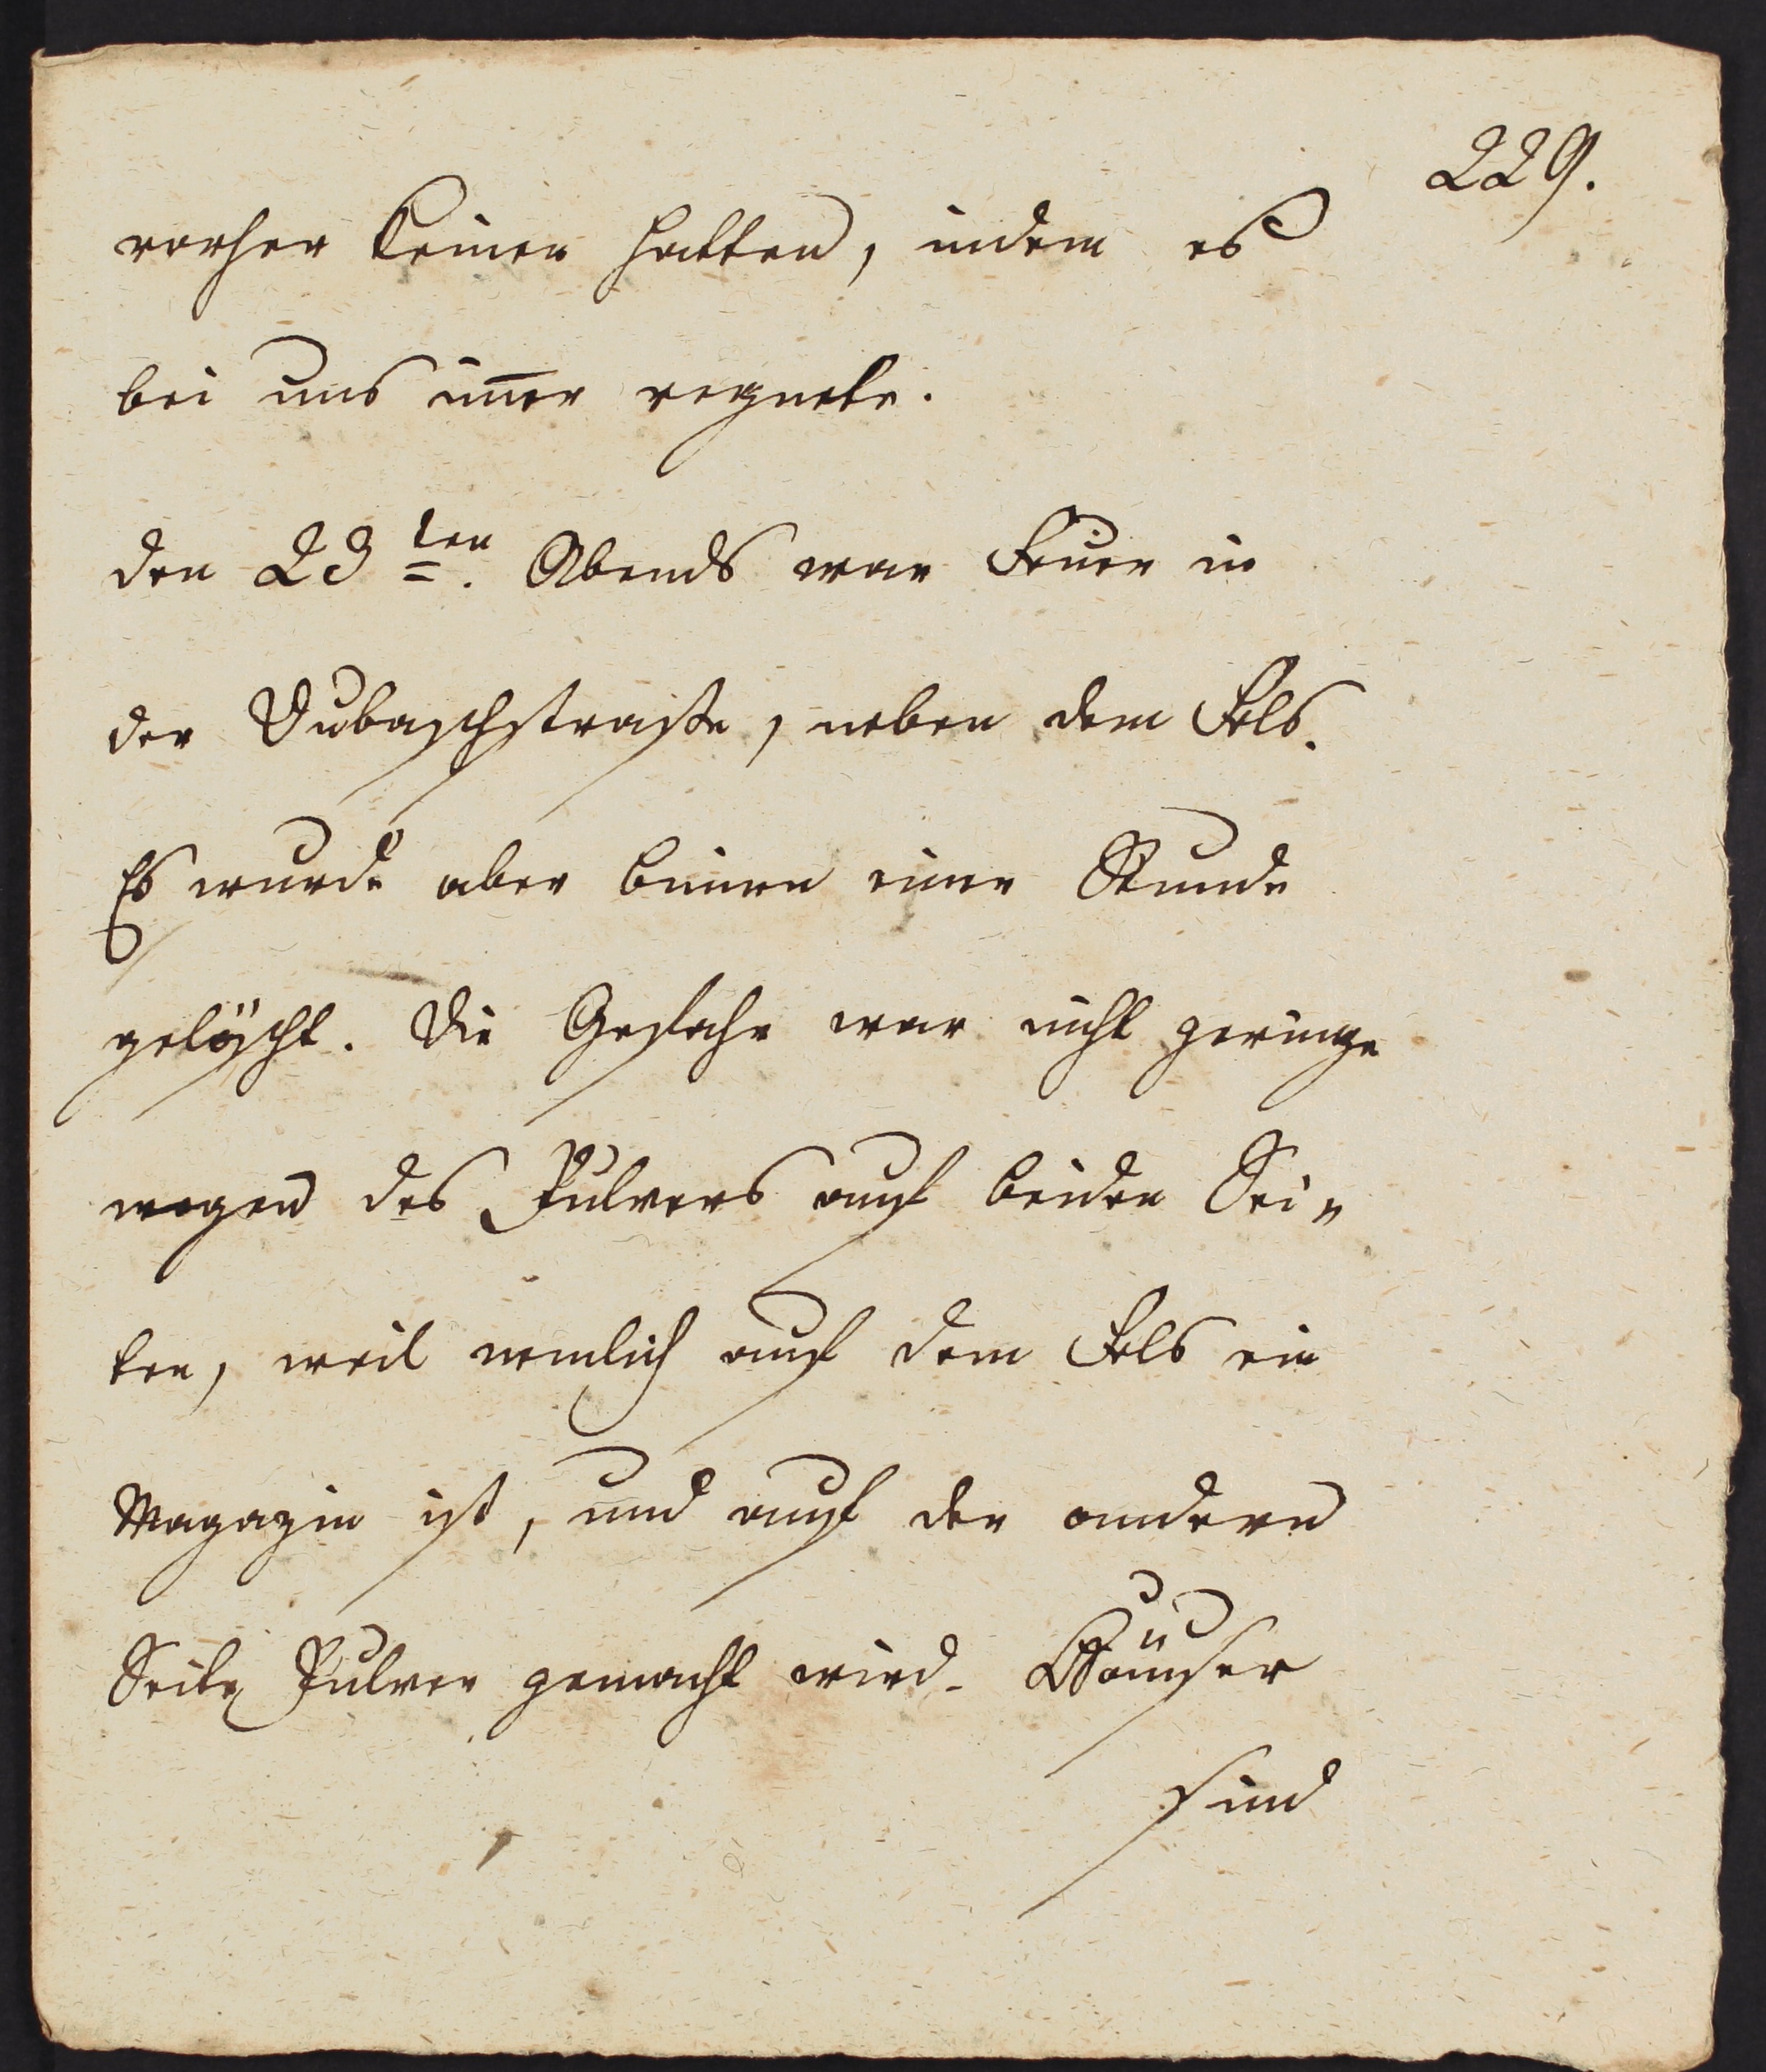 229.
vorher keinen hatten, indem es
bei uns im̅er regnete.
den 23ten. Abends war Feuer in
der Dubaschstraße, neben dem Fels.
Es wurde aber binnen einer Stunde
gelöscht. Die Gefahr war nicht geringe
wegen des Pulvers auf beiden Sei„
ten, weil nemlich auf dem Fels ein
Magazin ist, und auf der andern
Seite Pulver gemacht wird. Häuser
sind